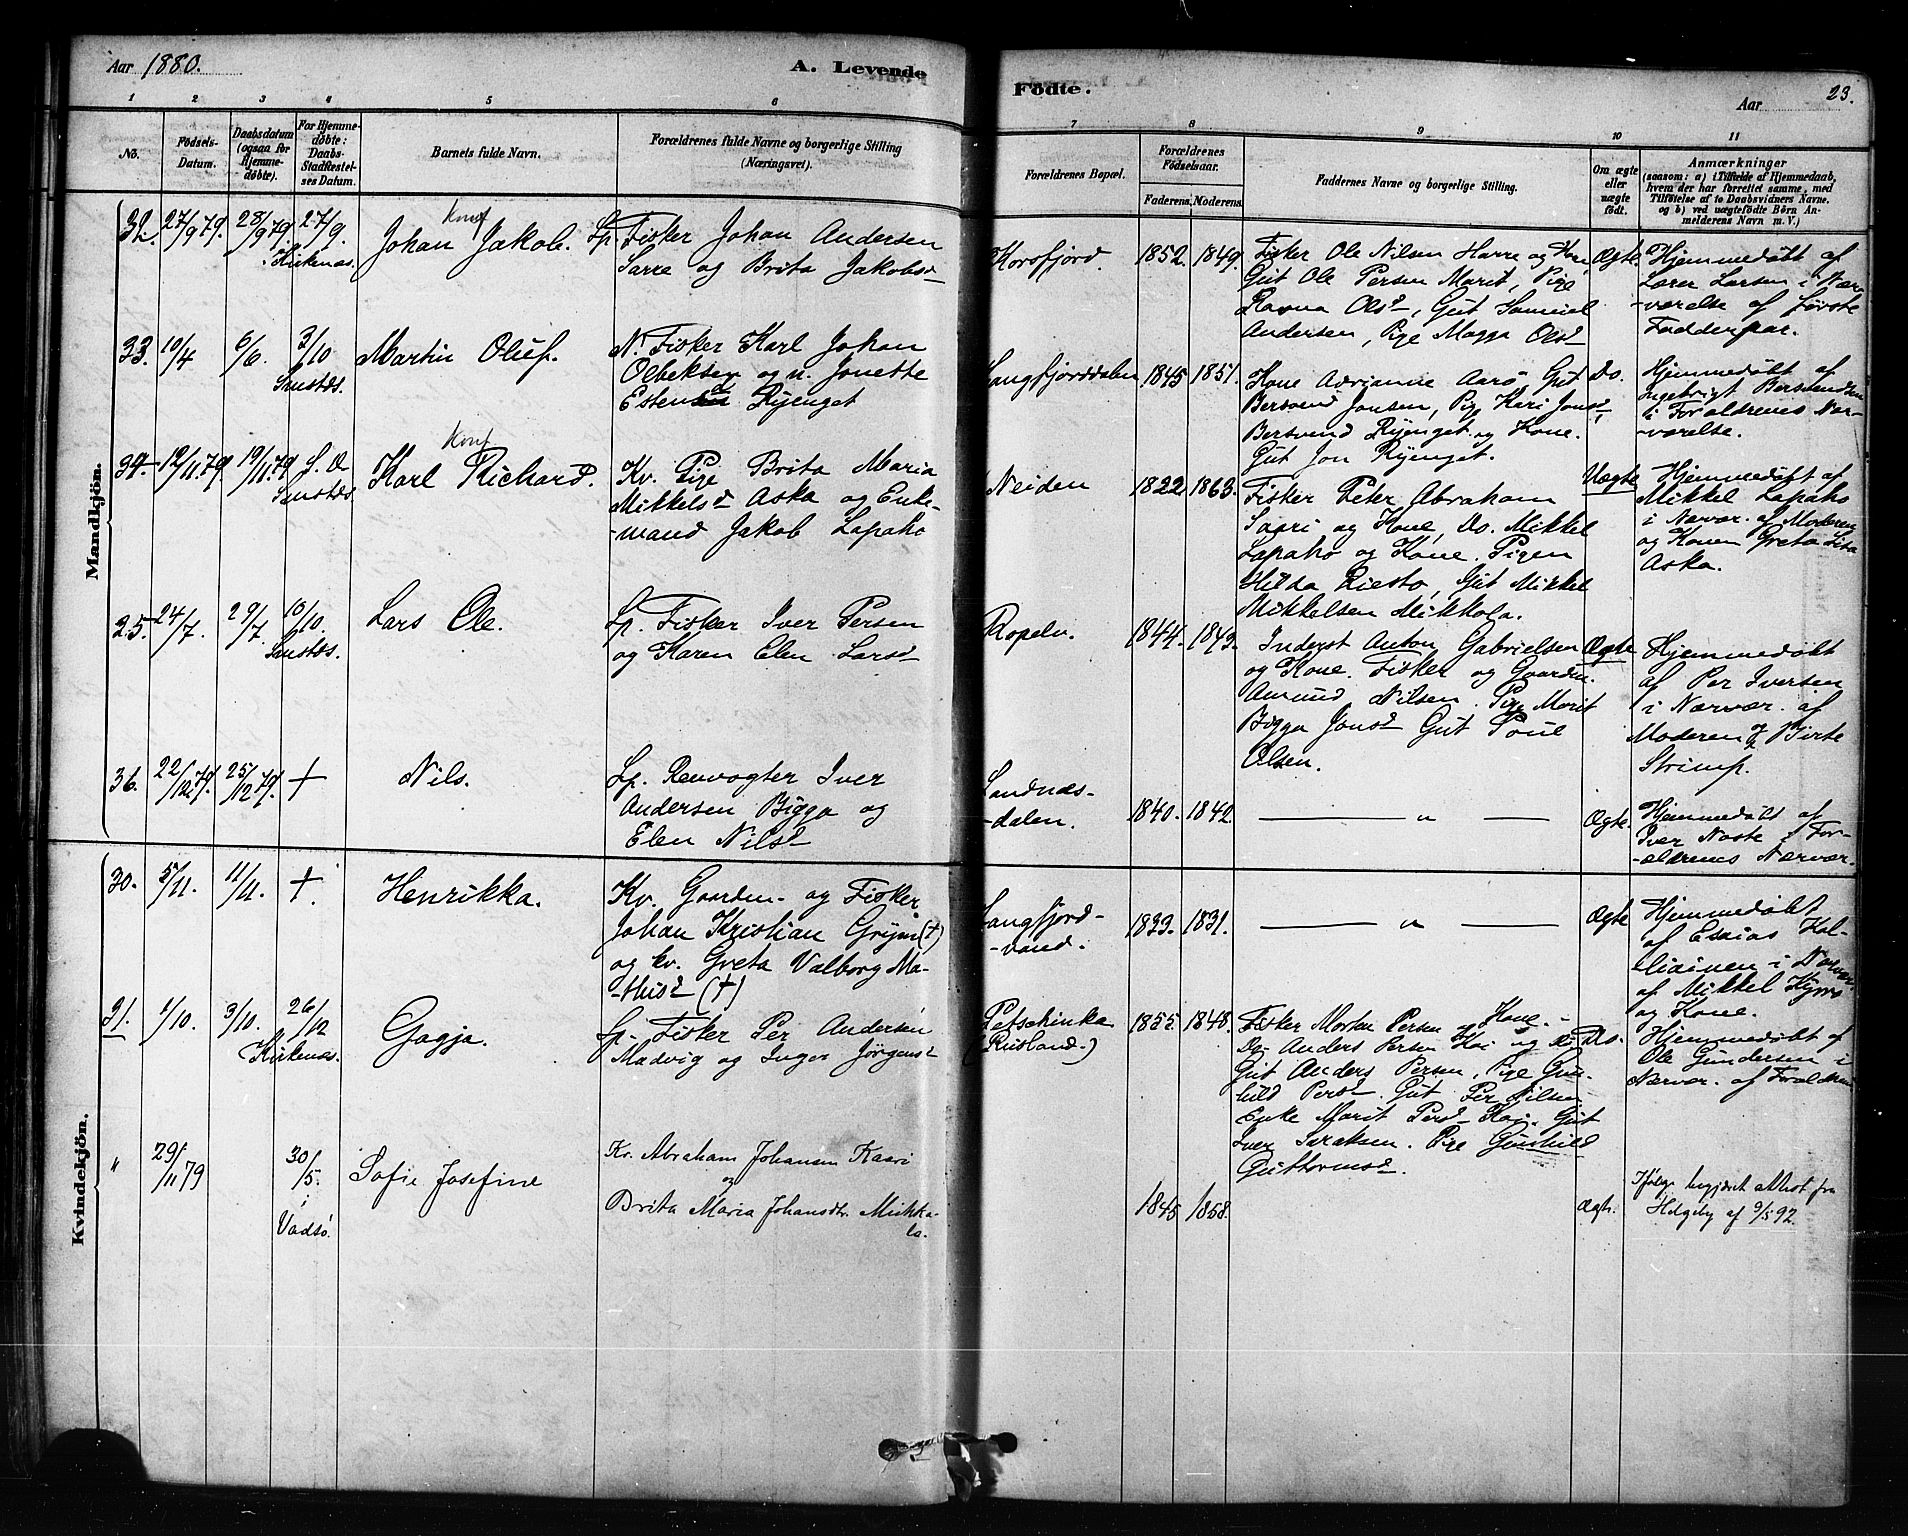 Aar 1880.
A. Levende
Födte.
Aar
23.
1 2 3 4 5 6
7 8 9 10 11
No.
Födsels-
Datum.
Daabsdatum
(ogsaa for
Hjemme-
döbte).
For Hjemme-
döbte:
Daabs-
Stadfæstel-
ses Datum.
Barnets fulde Navn.
Forældrenes fulde Navne og borgerlige Stilling
(Næringsvei).
Forældrenes Bopæl.
Forældrenes
Födselsaar.
Faderens. Moderens.
Faddernes Navne og borgerlige Stilling.
Om ægte
eller
uægte
födt.
Anmærkninger
(saasom: a) i Tilfælde af Hjemmedaab,
hvem der har forrettet samme, med
Tilföielse af to Daabsvidners Navne.
og b) ved uægtefödte Börn An-
melderens Navn m. V.)
Mandkjön.
32. 27/9 79. 28/9 79. 27/9.
i Kirkenæs.
Konf
Johan Jakob.
Lp. Fisker Johan Andersen
Sarre og Brita Jakobsd
Korsfjord.
1852. 1849.
Fisker Ole Nilsen Harre og Kone,
Gut Ole Persen Marit, Pige
Ravna Olsd, Gut Samuel
Andersen, Pige Magga Olsd
Ægte
Hjemmedöbt af
Lærer Larsen i Nær-
-værelse af förste
Fadderpar.
33. 10/4 6/6. 3/10
Martin Oluf.
N. Fisker Karl Johan
Olbeksen og n. Jonette
Estensen Ryenget
Langfjorddalen
1845 1851.
Kone Adrianne Aarö, Gut
Bersvend Jonsen, Pige Kari Jonsd,
Bersvend Ryenget og Kone.
Gut Jon Ryenget.
Do.
Hjemmedöbt af
Ingebrigt Bersvendsen
i Forældrenes Nær-
-værelse.
34. 12/11.79. 19/11.79 S.D.
Konf
Karl Richard.
Kv. Pige Brita Maria
Mikkelsd Aska og Enke-
-mand Jakob Lapaho
Neiden
1822 1863.
Fisker Peter Abraham
Saari og Kone, Do. Mikkel
Lapaho og Kone. Pigen
Hilda Riesto, Gut Mikkel
Mikkelsen Mikkola.
Uægte
Hjemmedöbt af
Mikkel Lapaho
i Nærvær. af Moderen
og Konen Greta Lisa
Aska.
35. 24/7. 29/7. 10/10.
Lars Ole.
Lp. Fisker Iver Persen
og Karen Elen Larsd
Ropelv.
1844. 1843.
Inderst Anton Gabrielsen
og Kone. Fisker og Gaardm.
Amund Nilsen. Pige Marit
Bigga Jonsd Gut Poul
Olsen.
Ægte
Hjemmedöbt
af Per Iversen
i Nærvær. af
Moderen og Birte
Strimp.
36. 22/12 79. 25/12 79. +
Nils.
Lp. Renvogter Iver
Andersen Bigga og
Elen Nilsd
Sandnæs-
-dalen.
1840. 1842.
— " —
Ægte.
Hjemmedöbt af
Iver Naste i For-
-ældrenes Nærvær.
Kvindekjön.
30. 5/11. 11/11. +
Henrikka.
Kv. Gaardm- og Fisker
Johan Kristian Gryn (+)
og kv. Greta Valborg Ma-
-thisd (+)
Langfjord-
-vand.
1833. 1831.
— " —
Ægte
Hjemmedöbt
af Esaias Kal-
-liainen i Nærvær
af Mikkel Kyrö
og Kone.
31. 1/10. 3/10. 26/12
Kirkenæs.
Gagja.
Lp. Fisker Per Andersen
Madvig og Inger Jörgensd
Petschinka
(Rusland.)
1855. 1848.
Fisker Morten Persen og Kone.
Do. Anders Persen Koi og Do.
Gut Anders Persen, Pige Gun-
hild Persd. Gut Per Nilsen
Enke Marit Persd Koi. Gut
Iver Isaksen. Pige Gunhild
Guttormsd.
Do.
Hjemmedöbt af
Ole Gundersen i
Nærvær. af Forældrene
" 29/11 79 30/5.
i
Vadsö.
Sofie Josefine
Kv. Abraham Johansen Kaari
og
Brita Maria Johansdtr. Mikko-
la.
1845 1858.
Ægte.
Ifölge begjæret attest fra
Helgeby af 9/5 92.